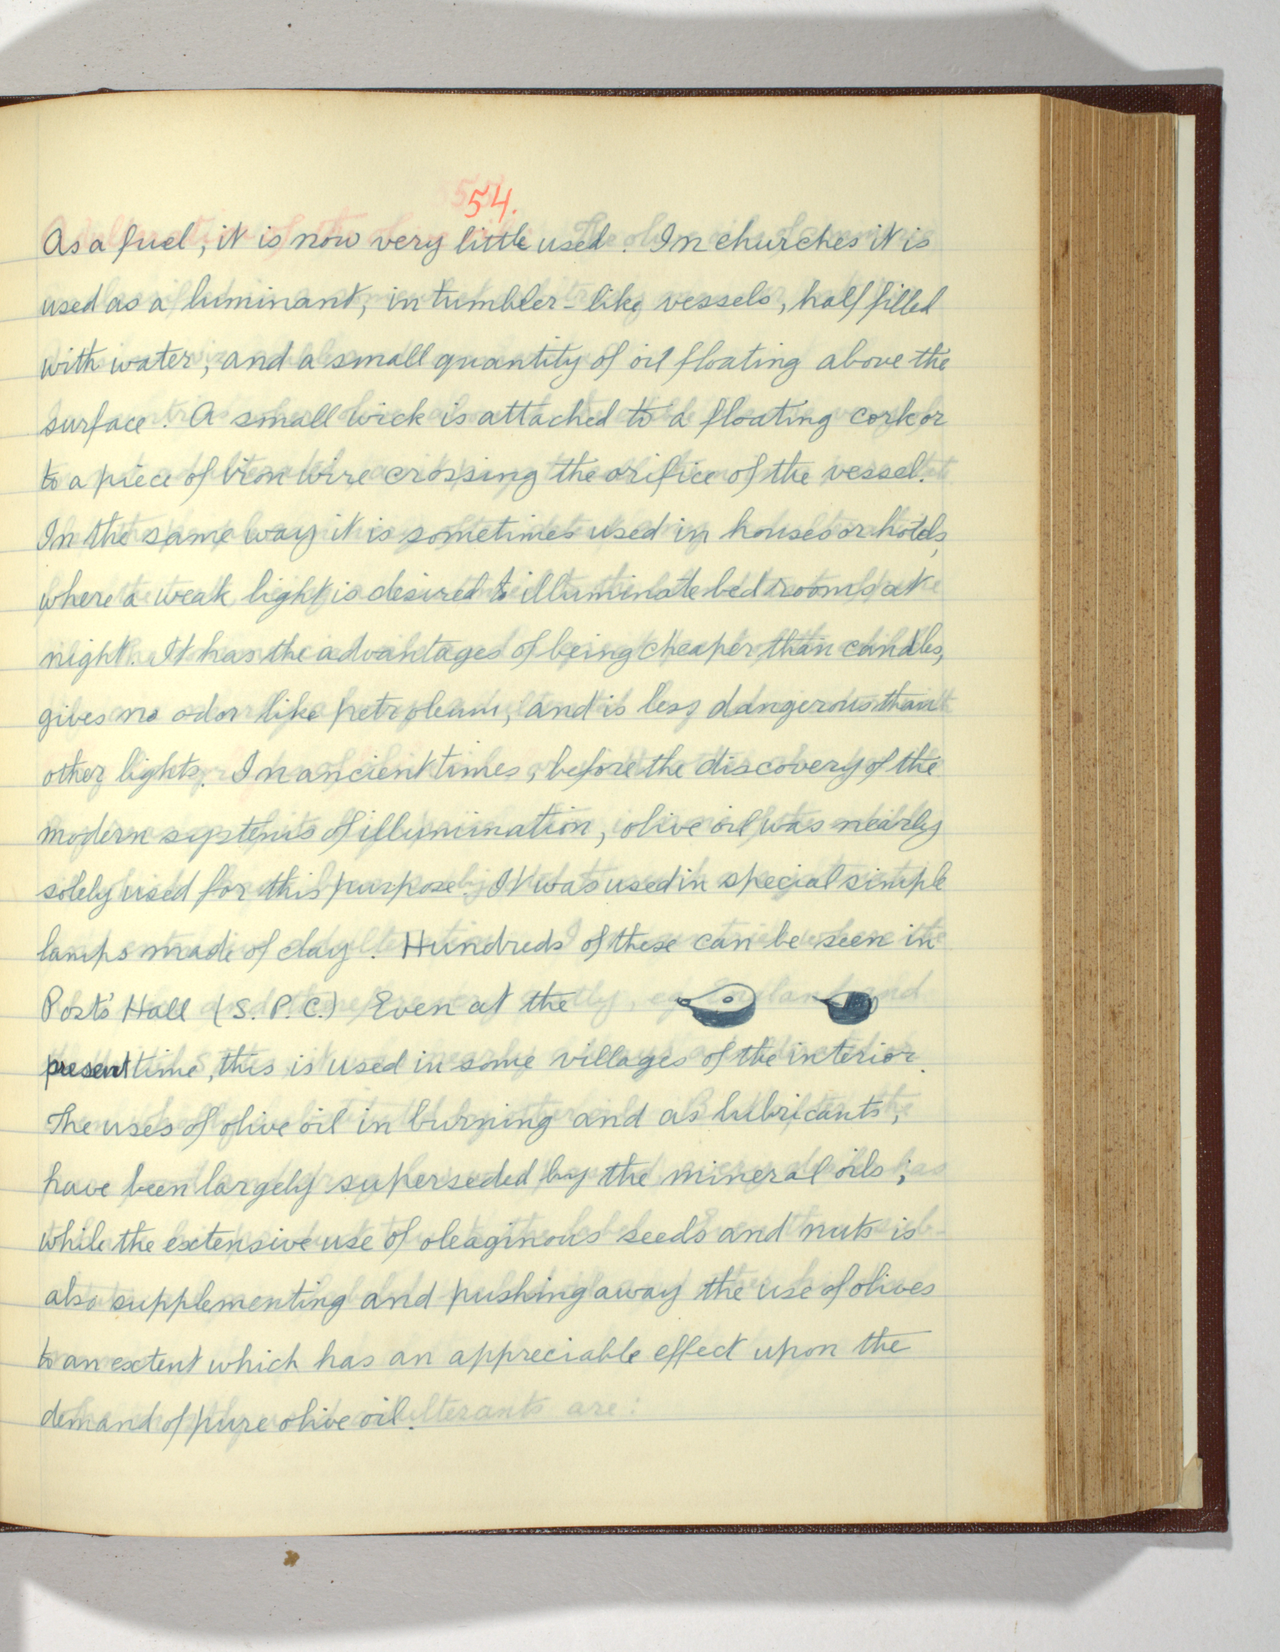 54.
As a fuel, it is now very little used. In churches it is
used as a luminant, in tumbler-like vessels, half filled
with water, and a small quantity of oil floating above the
surface. A small wick is attached to a floating cork or
to a piece of iron wire crossing the orifice of the vessel.
In the same way it is sometimes used in houses or hotels,
where a weak light is desired to illuminate bed rooms at
night. It has the advantages of being cheaper than candles,
gives no odor like petroleum, and is less dangerous than
other lights. In ancient times, before the discovery of the
modern systems of illumination, olive oil was nearly
solely used for this purpose. It was used in special simple
lamps made of clay. Hundreds of these can be seen in
Post's Hall (S. P. C.) Even at the
present time, this is used in some villages of the interior.
The uses of olive oil in burning and as lubricants,
have been largely superseded by the mineral oils;
while the extensive use of oleaginous seeds and nuts is
also supplementing and pushing away the use of olives
to an extent which has an appreciable effect upon the
demand of pure olive oil.